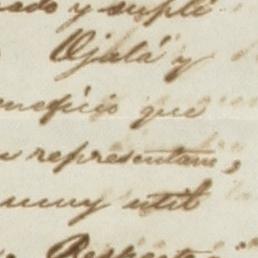 ado y suplí
Ojalá y
neficio que
representan,
muy util
Respecto